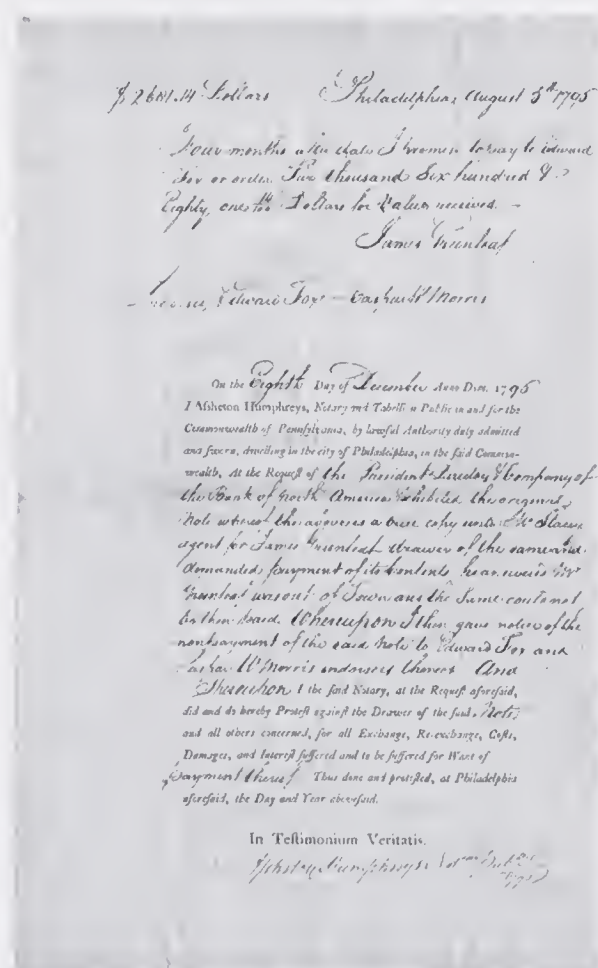 Dollars Philadelphia August 5th 1795
Four months after date I promise to pay to Edward
Fox or order thousand Six hundred &
Eighty one Dollars for Value received. –
James Greenleaf
Edward Fox – Caspar W Morris
On the Eighth Day of December Anno Dom. 1795
I Aſheton Humphreys, Notary and Tabellion Public in and for the
Commonwealth of Pennſylvania, by lawful Authority duly admitted
and ſworn, dwelling in the city of Philadelphia, in the ſaid Common-
wealth, At the Requeſt of the President Directors & Company of
the Bank of North America Exhibited the original
Note whereof the above is a true copy unto Mr
agent for James Greenleaf drawer of the same and
demanded payment of its Contents he answered Mr
Greenleaf was out of Town and the same could not
be then paid. Whereupon I then gave notice of the
nonpayment of the said Note to Edward Fox and
Caspar W Morris endorsers thereof And
Thereupon I the ſaid Notary, at the Requeſt aforeſaid,
did and do hereby Proteſt againſt the Drawer of the ſaid Note
and all others concerned, for all Exchange, Re-exchange, Coſts,
Damages, and Intereſt ſuffered and to be ſuffered for Want of
payment thereof Thus done and proteſted, at Philadelphia
aforeſaid, the Day and Year aboveſaid.
In Teſtimonium Veritatis.
Asheton Humphreys